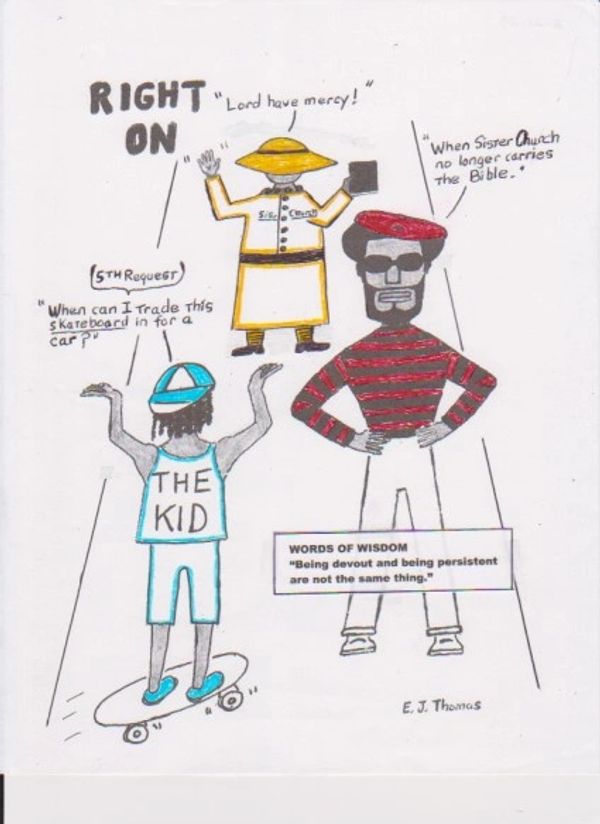 RIGHT
ON
"Lord have mercy!"
"When Sister Church
no longer carries
the Bible."
Sis. Church
(5TH Request)
"When can I trade this
skateboard in for a
car?"
THE
KID
WORDS OF WISDOM
"Being devout and being persistent
are not the same thing."
E. J. Thomas